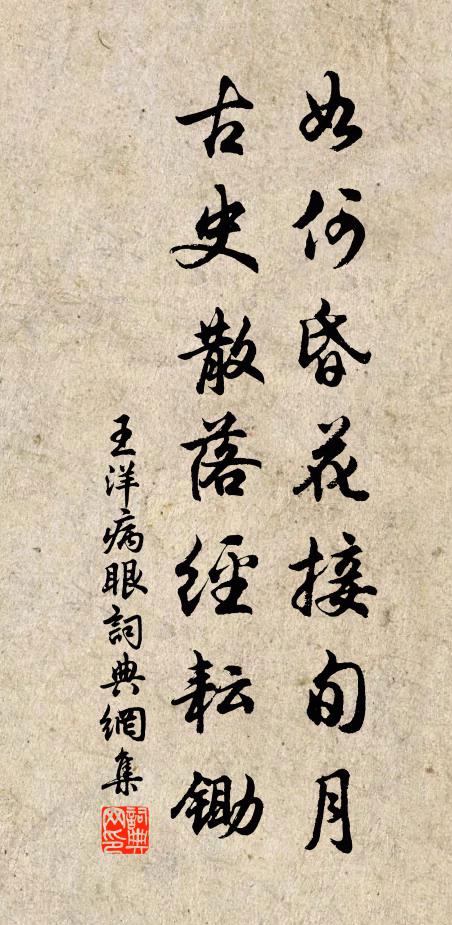 如何昏花接旬月
古史散落經耘鋤
王洋病眼詞典網集
詞典網印